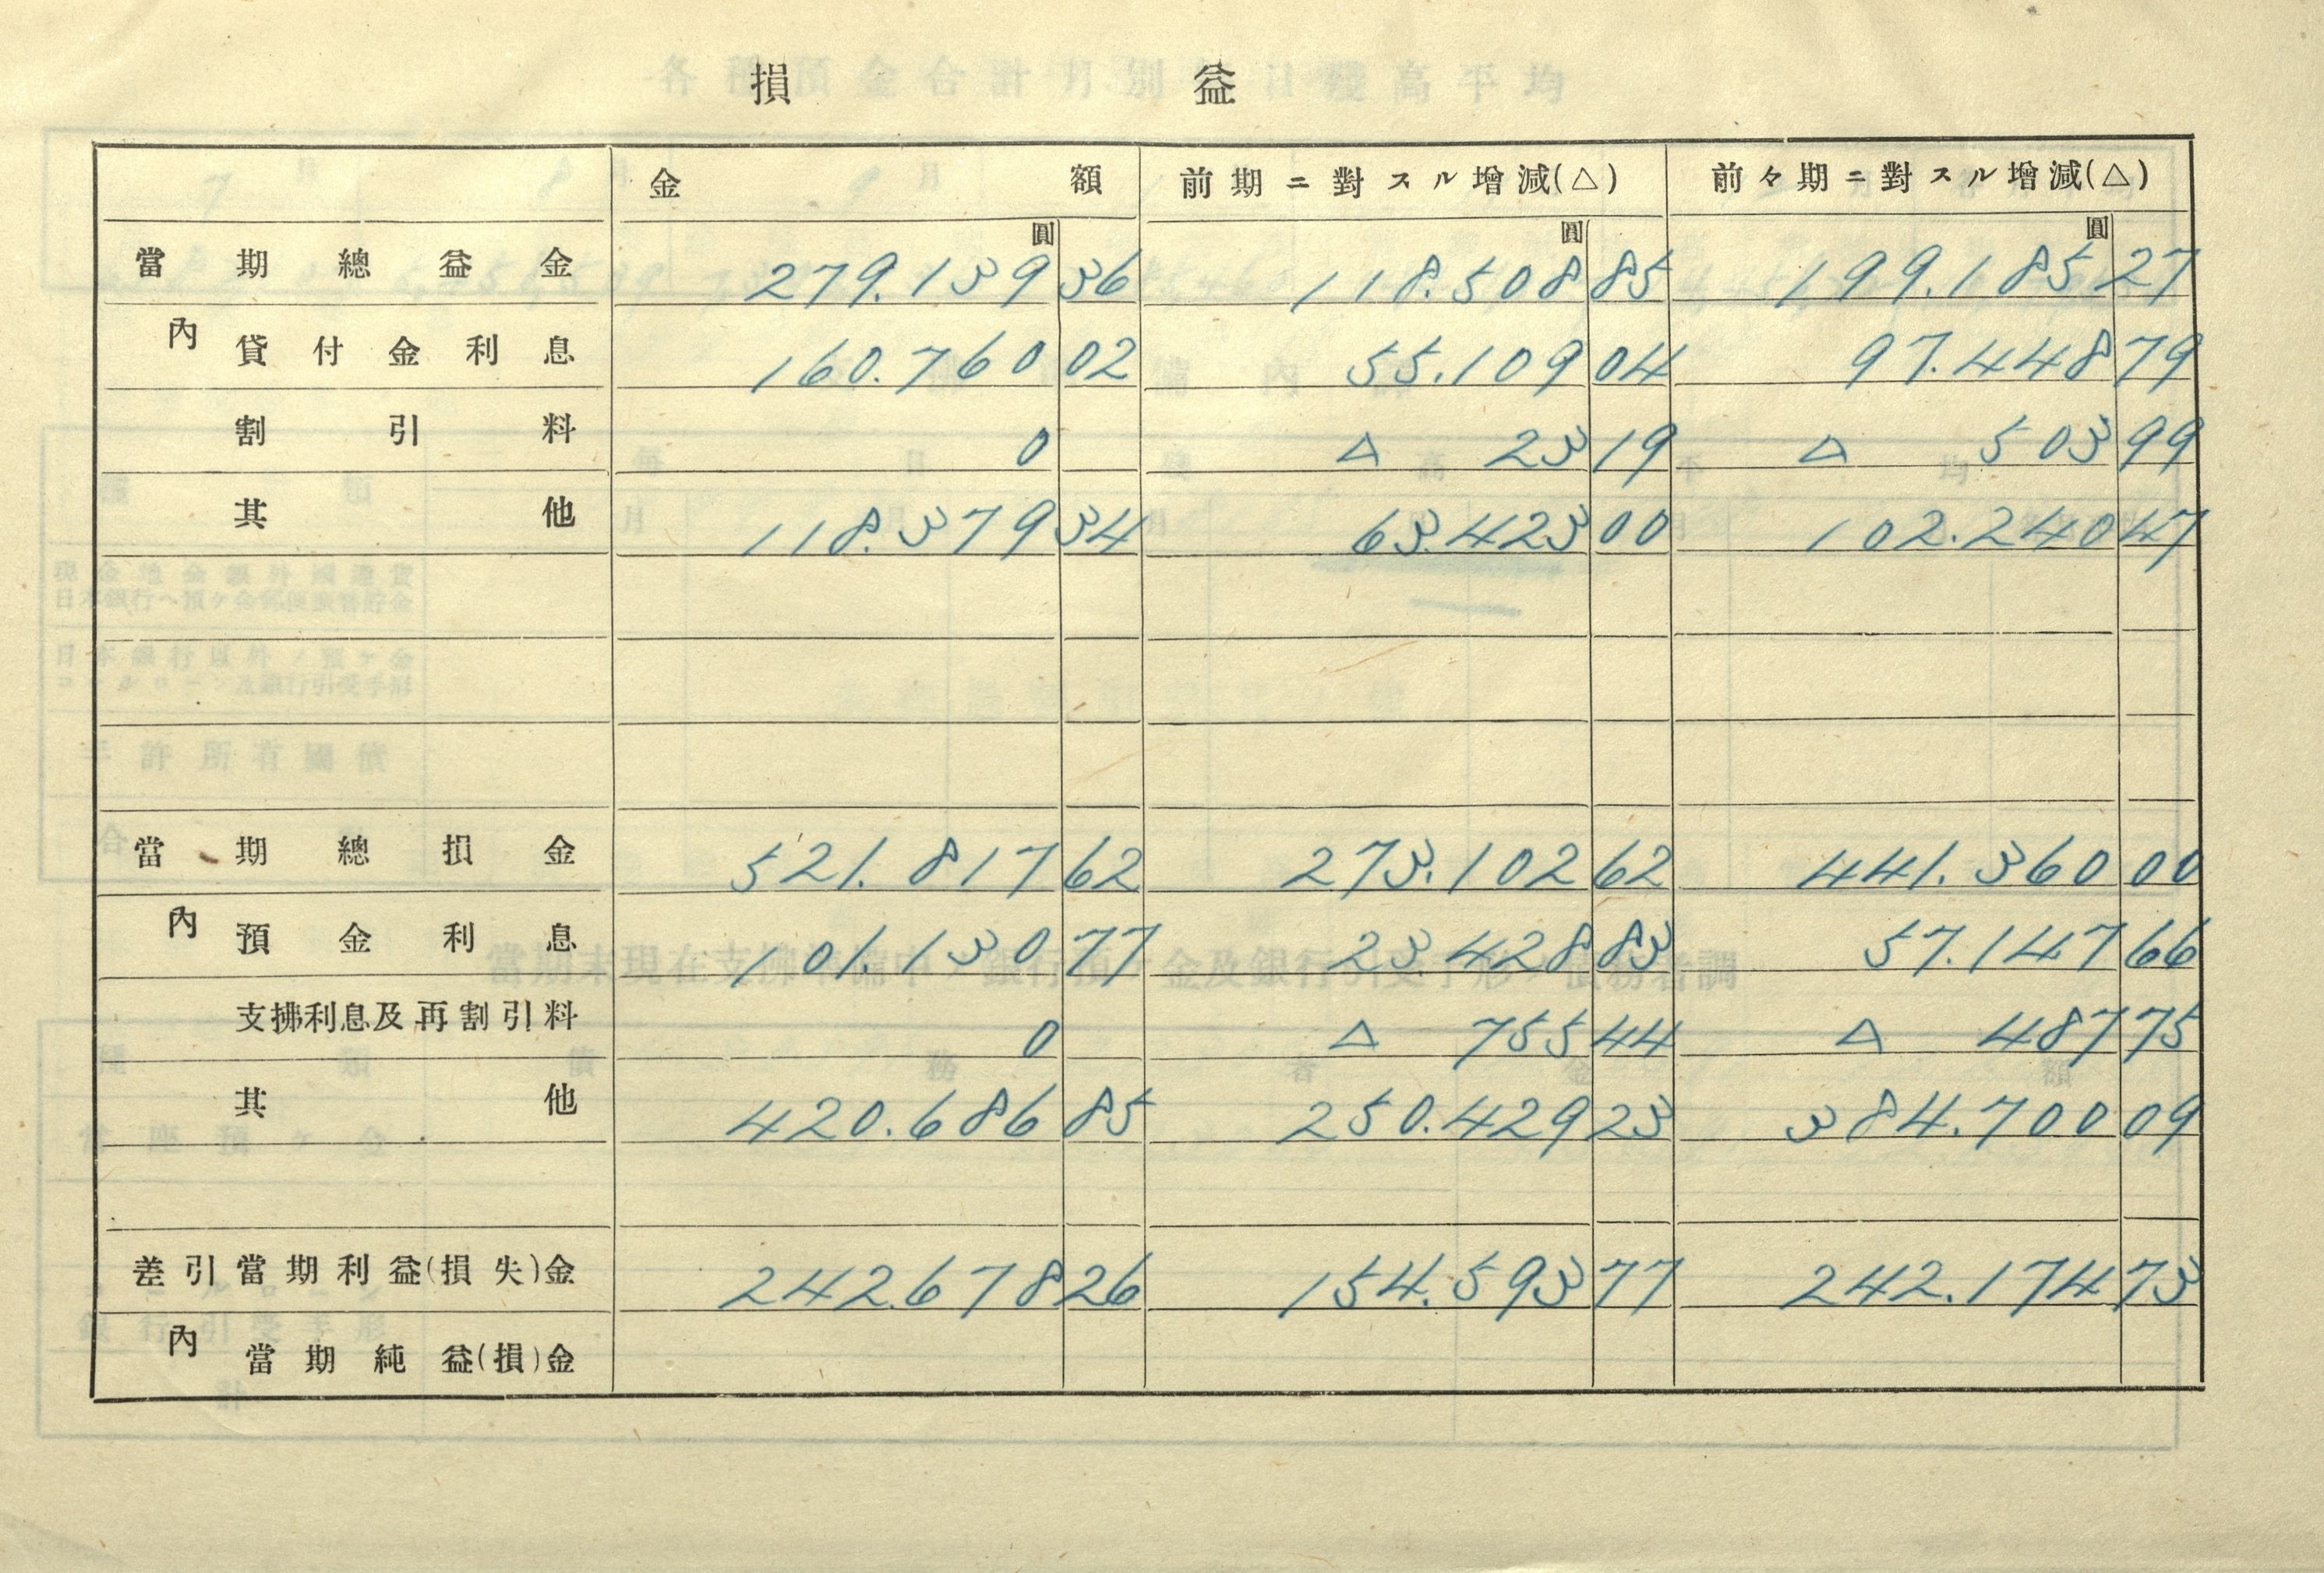 損益
金額 前期ニ對スル增減(△) 前々期ニ對スル增減(△)
圓 圓 圓
當期總益金 279.139 36 118.508 85 199.185 27
內 貸付金利息 160.760 02 55.109 04 97.448 79
割引料 0 △ 23 19 △ 503 99
其他 118.379 34 63.423 00 102.240 47
當期總損金 521.817 62 273.102 62 441.360 00
內 預金利息 101.130 77 23.428 83 57.147 66
支拂利息及再割引料 0 △ 755 44 △ 487 75
其他 420.686 85 250.429 23 384.700 09
差引當期利益(損失)金 242.678 26 154.593 77 242.174 73
內 當期純益(損)金